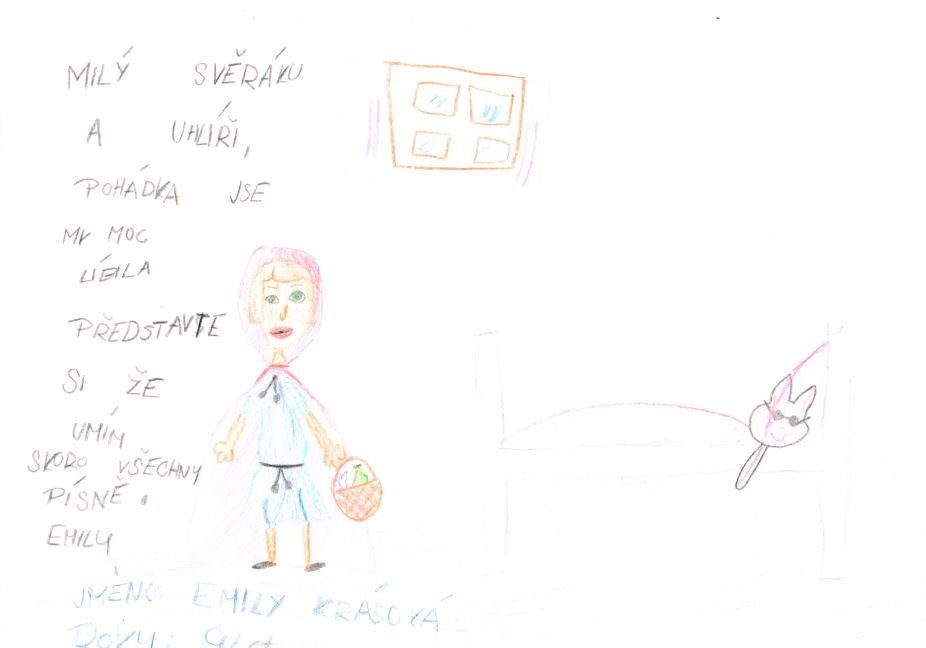 MILÝ SVĚRÁKU
A UHLÍŘI,
POHÁDKA JSE
MY MOC
LÍBILA
PŘEDSTAVTE
SI ŽE
UMÍM
SKORO VŠECHNY
PÍSNĚ.
EMILY
JMÉNO: EMILY KRÁSOVÁ
ROKY: 9